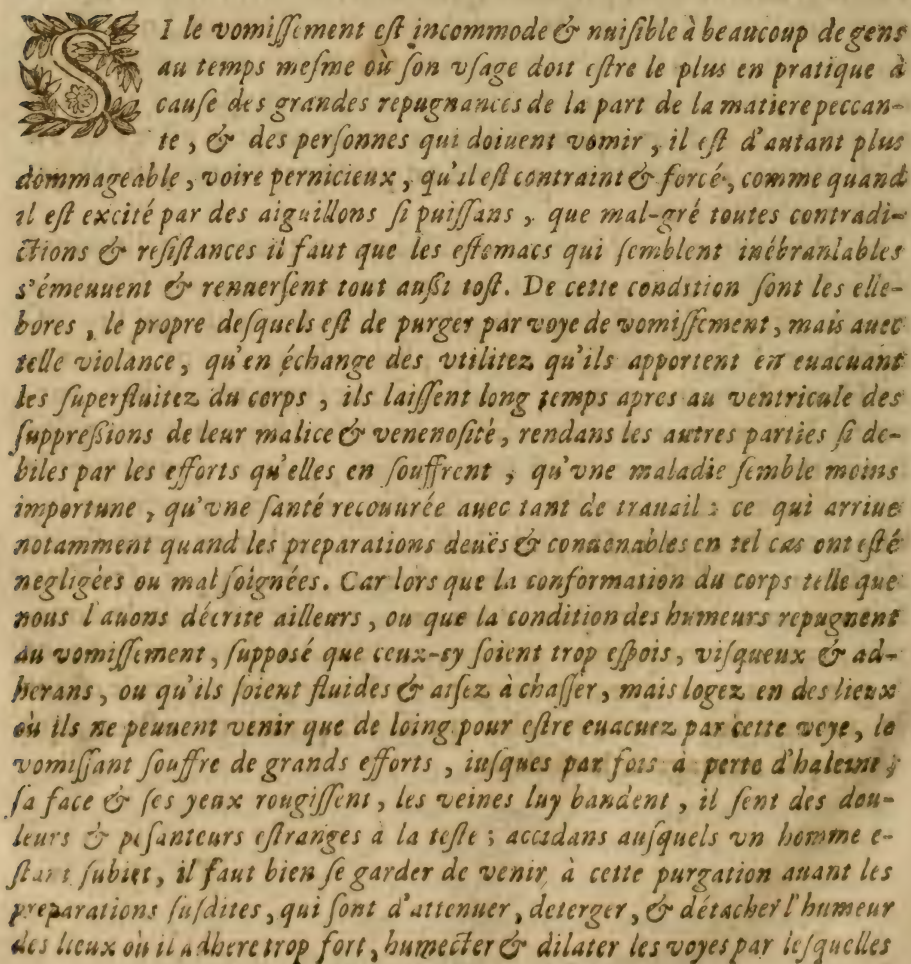 SI le vomiſſement eſt incommode & nuiſible à beaucoup de gens
au temps meſme où ſon vſage doit eſtre le plus en pratique à
cauſe des grandes repugnances de la part de la matiere peccan-
te, & des perſonnes qui doiuent vomir, il eſt d'autant plus
dommageable, voire pernicieux, qu'il eſt contraint & forcé, comme quand
il eſt excité par des aiguillons ſi puiſſans, que mal-gré toutes contradi-
ctions & reſiſtances il faut que les eſtomacs qui ſemblent inébranlables
s'émeuuent & renuerſent tout auſsi toſt. De cette condition ſont les elle-
bores, le propre deſquels eſt de purger par voye de vomiſſement, mais auec
telle violance, qu'en échange des vtilitez qu'ils apportent en euacuant
les ſuperfluitez du corps, ils laiſſent long temps apres au ventricule des
ſuppreſsions de leur malice & venenoſité, rendans les autres parties ſi de-
biles par les efforts qu'elles en ſouffrent, qu'vne maladie ſemble moins
importune, qu'vne ſanté recouurée auec tant de trauail: ce qui arriue
notamment quand les preparations deuës & conuenables en tel cas ont eſté
negligées ou mal ſoignées. Car lors que la conformation du corps telle que
nous l'auons décrite ailleurs, ou que la condition des humeurs repugnent
au vomiſſement, ſuppoſé que ceux-cy ſoient trop eſpois, viſqueux & ad-
herans, ou qu'ils ſoient fluides & aiſez à chaſſer, mais logez en des lieux
où ils ne peuuent venir que de loing pour eſtre euacuez par cette voye, le
vomiſſant ſouffre de grands efforts, iuſques par fois à perte d'haleine;
ſa face & ſes yeux rougiſſent, les veines luy bandent, il ſent des dou-
leurs & peſanteurs eſtranges à la teſte; accidans auſquels vn homme e-
ſtant ſubiet, il faut bien ſe garder de venir à cette purgation auant les
preparations ſuſdites, qui ſont d'attenuer, deterger, & détacher l'humeur
des lieux où il adhere trop fort, humecter & dilater les voyes par leſquelles